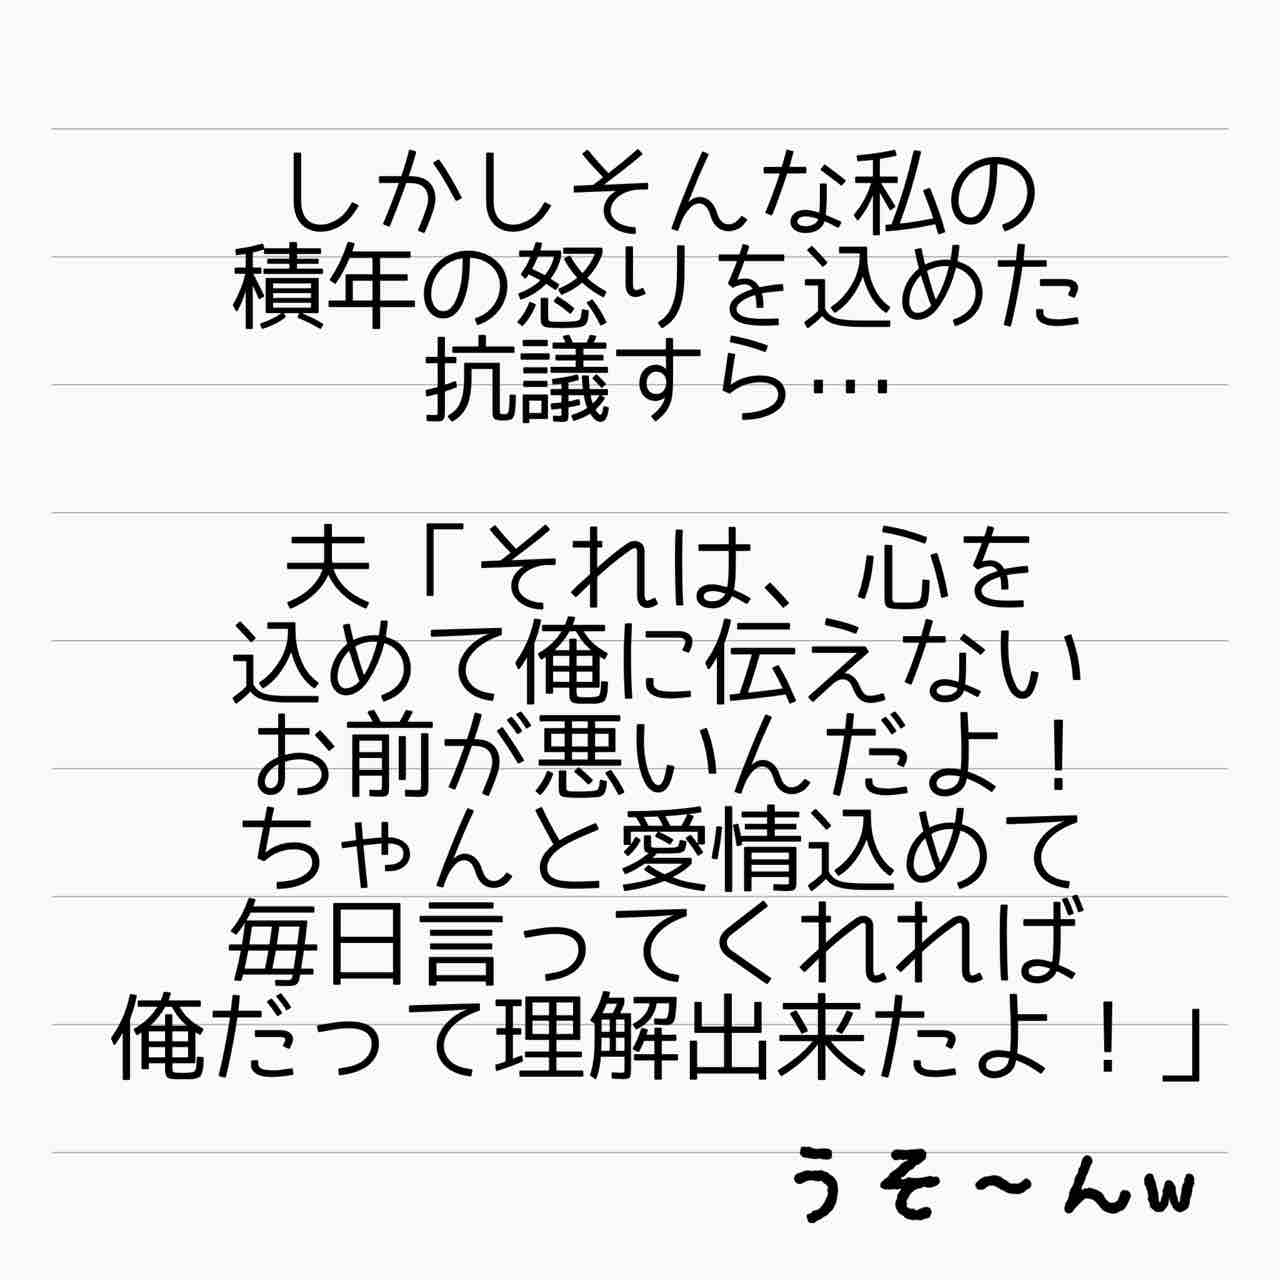 しかしそんな私の
積年の怒りを込めた
抗議すら…
夫「それは、心を
込めて俺に伝えない
お前が悪いんだよ！
ちゃんと愛情込めて
毎日言ってくれれば
俺だって理解出来たよ！」
うそ～んw